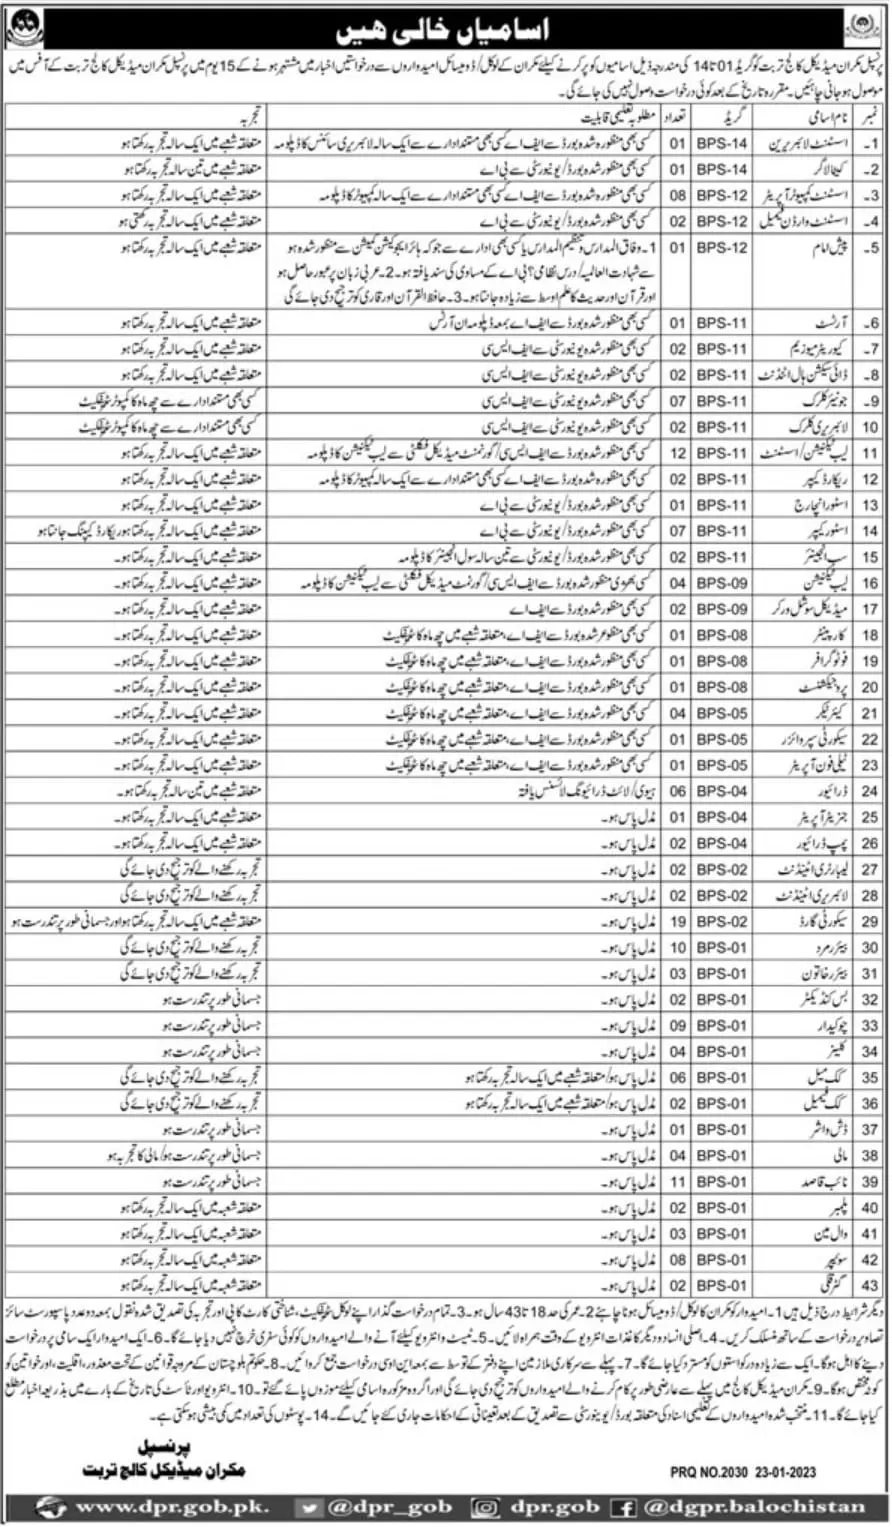 اسامیاں خالی هیں
پرنسپل مکران میڈیکل کالج تربت کو گریڈ 01 تا 14 کی مندرجہ ذیل اسامیوں کو پر کرنے کیلئے مکران کے لوکل/ڈومیسائل امیدواروں سے درخواستیں اخبار میں مشتہر ہونے کے 15 یوم میں پرنسپل مکران میڈیکل کالج تربت کے آفس میں
موصول ہو جانی چاہئیں۔ مقررہ تاریخ کے بعد کوئی درخواست وصول نہیں کی جائے گی۔
نمبر نام اسامی گریڈ تعداد مطلوبہ تعلیمی قابلیت تجربہ
1۔ اسسٹنٹ لائبریرین BPS-14 01 کسی بھی منظور شدہ بورڈ سے ایف اے کسی بھی مستند ادارے سے ایک سالہ لائبریری سائنس کا ڈپلومہ متعلقہ شعبے میں ایک سالہ تجربہ رکھتا ہو
2۔ کیٹالاگر BPS-14 01 کسی بھی منظور شدہ بورڈ/یونیورسٹی سے بی اے متعلقہ شعبے میں تین سالہ تجربہ رکھتا ہو
3۔ اسسٹنٹ کمپیوٹر آپریٹر BPS-12 08 کسی بھی منظور شدہ بورڈ سے ایف اے کسی بھی مستند ادارے سے ایک سالہ کمپیوٹر کا ڈپلومہ متعلقہ شعبے میں ایک سالہ تجربہ رکھتا ہو
4۔ اسسٹنٹ وارڈن فیمیل BPS-12 02 کسی بھی منظور شدہ بورڈ/یونیورسٹی سے بی اے متعلقہ شعبے میں ایک سالہ تجربہ رکھتی ہو
5۔ پیش امام BPS-12 01 1۔ وفاق المدارس و تنظیم المدارس یا کسی بھی ادارے سے جو کہ ہائر ایجوکیشن کمیشن سے منظور شدہ ہو متعلقہ شعبے میں ایک سالہ تجربہ رکھتا ہو
سے شہادت العالمیہ/درس نظامی؟ بی اے کے مساوی کی سند یافتہ ہو۔ 2۔ عربی زبان پر عبور حاصل ہو
اور قرآن اور حدیث کا علم اوسط سے زیادہ جانتا ہو۔ 3۔ حافظ القرآن اور قاری کو ترجیح دی جائے گی
6۔ آرٹسٹ BPS-11 01 کسی بھی منظور شدہ بورڈ سے ایف اے بمعہ ڈپلومہ ان آرٹس متعلقہ شعبے میں ایک سالہ تجربہ رکھتا ہو
7۔ کیوریٹر میوزیم BPS-11 02 کسی بھی منظور شدہ یونیورسٹی سے ایف ایس سی متعلقہ شعبے میں ایک سالہ تجربہ رکھتا ہو
8۔ ڈائی سیکشن ہال اٹنڈنٹ BPS-11 02 کسی بھی منظور شدہ یونیورسٹی سے ایف ایس سی متعلقہ شعبے میں ایک سالہ تجربہ رکھتا ہو
9۔ جونیئر کلرک BPS-11 07 کسی بھی منظور شدہ یونیورسٹی سے ایف ایس سی کسی بھی مستند ادارے سے چھ ماہ کا کمپیوٹر سرٹیفکیٹ
10 لائبریری کلرک BPS-11 02 کسی بھی منظور شدہ یونیورسٹی سے ایف ایس سی کسی بھی مستند ادارے سے چھ ماہ کا کمپیوٹر سرٹیفکیٹ
11 لیب ٹیکنیشن/اسسٹنٹ BPS-11 12 کسی بھی منظور شدہ بورڈ سے ایف ایس سی/گورنمنٹ میڈیکل فیکلٹی سے لیب ٹیکنیشن کا ڈپلومہ متعلقہ شعبے میں ایک سالہ تجربہ رکھتا ہو
12 ریکارڈ کیپر BPS-11 02 کسی بھی منظور شدہ بورڈ سے ایف اے کسی بھی مستند ادارے سے ایک سالہ کمپیوٹر کا ڈپلومہ متعلقہ شعبے میں ایک سالہ تجربہ رکھتا ہو
13 اسٹور انچارج BPS-11 01 کسی بھی منظور شدہ بورڈ/یونیورسٹی سے بی اے متعلقہ شعبے میں ایک سالہ تجربہ رکھتا ہو
14 اسٹور کیپر BPS-11 07 کسی بھی منظور شدہ بورڈ/یونیورسٹی سے بی اے متعلقہ شعبے میں ایک سالہ تجربہ رکھتا ہو ریکارڈ کیپنگ جانتا ہو
15 سب انجینئر BPS-11 02 کسی بھی منظور شدہ بورڈ/یونیورسٹی سے تین سالہ سول انجینئر کا ڈپلومہ متعلقہ شعبے میں ایک سالہ تجربہ رکھتا ہو۔
16 لیب ٹیکنیشن BPS-09 04 کسی منظور شدہ بورڈ سے ایف ایس سی/گورنمنٹ میڈیکل فیکلٹی سے لیب ٹیکنیشن کا ڈپلومہ متعلقہ شعبے میں ایک سالہ تجربہ رکھتا ہو۔
17 میڈیکل سوشل ورکر BPS-09 02 کسی بھی منظور شدہ بورڈ سے ایف اے متعلقہ شعبے میں ایک سالہ تجربہ رکھتا ہو۔
18 کارپینٹر BPS-08 01 کسی بھی منظور شدہ بورڈ سے ایف اے، متعلقہ شعبے میں چھ ماہ کا سرٹیفکیٹ متعلقہ شعبے میں ایک سالہ تجربہ رکھتا ہو۔
19 فوٹو گرافر BPS-08 01 کسی بھی منظور شدہ بورڈ سے ایف اے، متعلقہ شعبے میں چھ ماہ کا سرٹیفکیٹ متعلقہ شعبے میں ایک سالہ تجربہ رکھتا ہو۔
20 پروجیکشنسٹ BPS-08 01 کسی بھی منظور شدہ بورڈ سے ایف اے، متعلقہ شعبے میں چھ ماہ کا سرٹیفکیٹ متعلقہ شعبے میں ایک سالہ تجربہ رکھتا ہو۔
21 کیئر ٹیکر BPS-05 04 کسی بھی منظور شدہ بورڈ سے ایف اے، متعلقہ شعبے میں چھ ماہ کا سرٹیفکیٹ متعلقہ شعبے میں ایک سالہ تجربہ رکھتا ہو۔
22 سیکورٹی سپروائزر BPS-05 01 کسی بھی منظور شدہ بورڈ سے ایف اے، متعلقہ شعبے میں چھ ماہ کا سرٹیفکیٹ متعلقہ شعبے میں ایک سالہ تجربہ رکھتا ہو۔
23 ٹیلی فون آپریٹر BPS-05 01 کسی بھی منظور شدہ بورڈ سے ایف اے، متعلقہ شعبے میں چھ ماہ کا سرٹیفکیٹ متعلقہ شعبے میں ایک سالہ تجربہ رکھتا ہو۔
24 ڈرائیور BPS-04 06 ہیوی/لائٹ ڈرائیونگ لائسنس یافتہ متعلقہ شعبے میں تین سالہ تجربہ رکھتا ہو۔
25 جنریٹر آپریٹر BPS-04 01 مڈل پاس ہو۔ متعلقہ شعبے میں ایک سالہ تجربہ رکھتا ہو۔
26 پمپ ڈرائیور BPS-04 02 مڈل پاس ہو۔ متعلقہ شعبے میں ایک سالہ تجربہ رکھتا ہو۔
27 لیبارٹری اٹینڈنٹ BPS-02 02 مڈل پاس ہو۔ تجربہ رکھنے والے کو ترجیح دی جائے گی
28 لائبریری اٹینڈنٹ BPS-02 02 مڈل پاس ہو۔ تجربہ رکھنے والے کو ترجیح دی جائے گی
29 سیکورٹی گارڈ BPS-02 19 مڈل پاس ہو۔ متعلقہ شعبے میں ایک سالہ تجربہ رکھتا ہو اور جسمانی طور پر تندرست ہو
30 بیئرر مرد BPS-01 10 مڈل پاس ہو۔ تجربہ رکھنے والے کو ترجیح دی جائے گی
31 بیئرر خاتون BPS-01 03 مڈل پاس ہو۔ تجربہ رکھنے والے کو ترجیح دی جائے گی
32 بس کنڈیکٹر BPS-01 02 مڈل پاس ہو۔ جسمانی طور پر تندرست ہو
33 چوکیدار BPS-01 09 مڈل پاس ہو۔ جسمانی طور پر تندرست ہو
34 کلینر BPS-01 04 مڈل پاس ہو۔ جسمانی طور پر تندرست ہو
35 کک میل BPS-01 06 مڈل پاس ہو/متعلقہ شعبے میں ایک سالہ تجربہ رکھتا ہو تجربہ رکھنے والے کو ترجیح دی جائے گی
36 کک فیمیل BPS-01 02 مڈل پاس ہو/متعلقہ شعبے میں ایک سالہ تجربہ رکھتا ہو تجربہ رکھنے والے کو ترجیح دی جائے گی
37 ڈش واشر BPS-01 01 مڈل پاس ہو۔ جسمانی طور پر تندرست ہو
38 مالی BPS-01 04 مڈل پاس ہو۔ جسمانی طور پر تندرست ہو/مالی کا تجربہ ہو
39 نائب قاصد BPS-01 11 مڈل پاس ہو۔ جسمانی طور پر تندرست ہو
40 پلمبر BPS-01 02 مڈل پاس ہو۔ متعلقہ شعبہ میں ایک سالہ تجربہ رکھتا ہو۔
41 وال مین BPS-01 03 مڈل پاس ہو۔ متعلقہ شعبہ میں ایک سالہ تجربہ رکھتا ہو۔
42 سوئیپر BPS-01 08 مڈل پاس ہو۔ متعلقہ شعبہ میں ایک سالہ تجربہ رکھتا ہو۔
43 BPS-01 02 مڈل پاس ہو۔ متعلقہ شعبہ میں ایک سالہ تجربہ رکھتا ہو۔
دیگر شرائط درج ذیل ہیں 1۔ امیدوار کو مکران کا لوکل/ڈومیسائل ہونا چاہئے 2۔ عمر کی حد 18 تا 43 سال ہو۔ 3۔ تمام درخواست گذار اپنے لوکل سرٹیفکیٹ، شناختی کارڈ کا پی اور تجربہ کی تصدیق شدہ نقول بمعہ دو عدد پاسپورٹ سائز
تصاویر درخواست کے ساتھ منسلک کریں۔ 4۔ اصلی اسناد و دیگر کاغذات انٹرویو کے وقت ہمراہ لائیں۔ 5۔ ٹیسٹ و انٹرویو کیلئے آنے والے امیدواروں کو کوئی سفری خرچ نہیں دیا جائے گا۔ 6۔ ایک امیدوار ایک اسامی پر درخواست
دینے کا اہل ہوگا۔ ایک سے زیادہ درخواستوں کو مسترد کیا جائے گا۔ 7۔ پہلے سے سرکاری ملازمین اپنے دفتر کے توسط سے بمعہ این او سی درخواست جمع کروائیں۔ 8۔ حکومت بلوچستان کے مروجہ قوانین کے تحت معذور، اقلیت، اور خواتین کو
کوٹہ مختص ہوگا۔ 9۔ مکران میڈیکل کالج میں پہلے سے عارضی طور پر کام کرنے والے امیدواروں کو ترجیح دی جائے گی اور اگر وہ مذکورہ اسامی کیلئے موزوں پائے گئے تو۔ 10۔ انٹرویو اور ٹاسٹ کی تاریخ کے بارے میں بذریعہ اخبار مطلع
کیا جائے گا۔ 11۔ منتخب شدہ امیدواروں کے تعلیمی اسناد کی متعلقہ بورڈ/یونیورسٹی سے تصدیق کے بعد تعیناتی کے احکامات جاری کئے جائیں گے۔ 14۔ پوسٹوں کی تعداد میں کمی بیشی ہو سکتی ہے۔
پرنسپل
مکران میڈیکل کالج تربت
PRQ NO.2030 23-01-2023
www.dpr.gob.pk. @dpr_gob dpr.gob @dgpr.balochistan